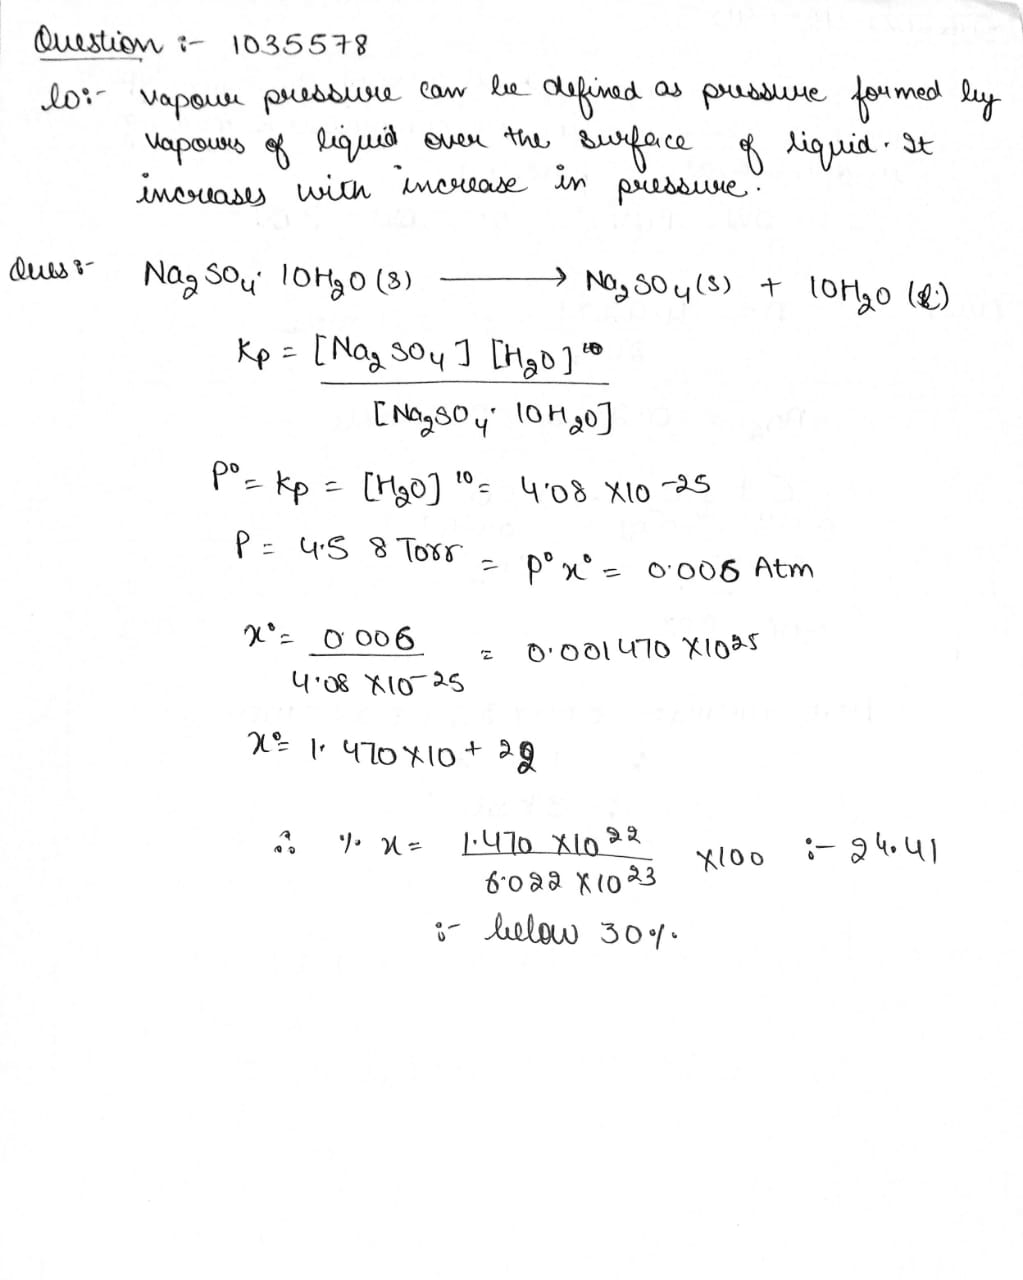 Question :- 1035578
lo:- vapour pressure can be defined as pressure formed by
vapours of liquid over the surface of liquid. It
increases with increase in pressure.
Ques :- Na₂SO₄· 10H₂O(s) ⟶ Na₂SO₄(s) + 10H₂O (l)
Kp = [Na₂SO₄] [H₂O]¹⁰
[Na₂SO₄· 10H₂O]
P⁰ = Kp = [H₂O]¹⁰ = 4.08 X10⁻²⁵
P = 4.58 Torr = P⁰x⁰ = 0.006 Atm
x⁰ = 0.006 = 0.001470 X10²⁵
4.08 X10⁻²⁵
x⁰ = 1.470X10⁺²²
∴ % x = 1.470 X10²² X100 :- 24.41
6.022 X10²³
:- below 30%.